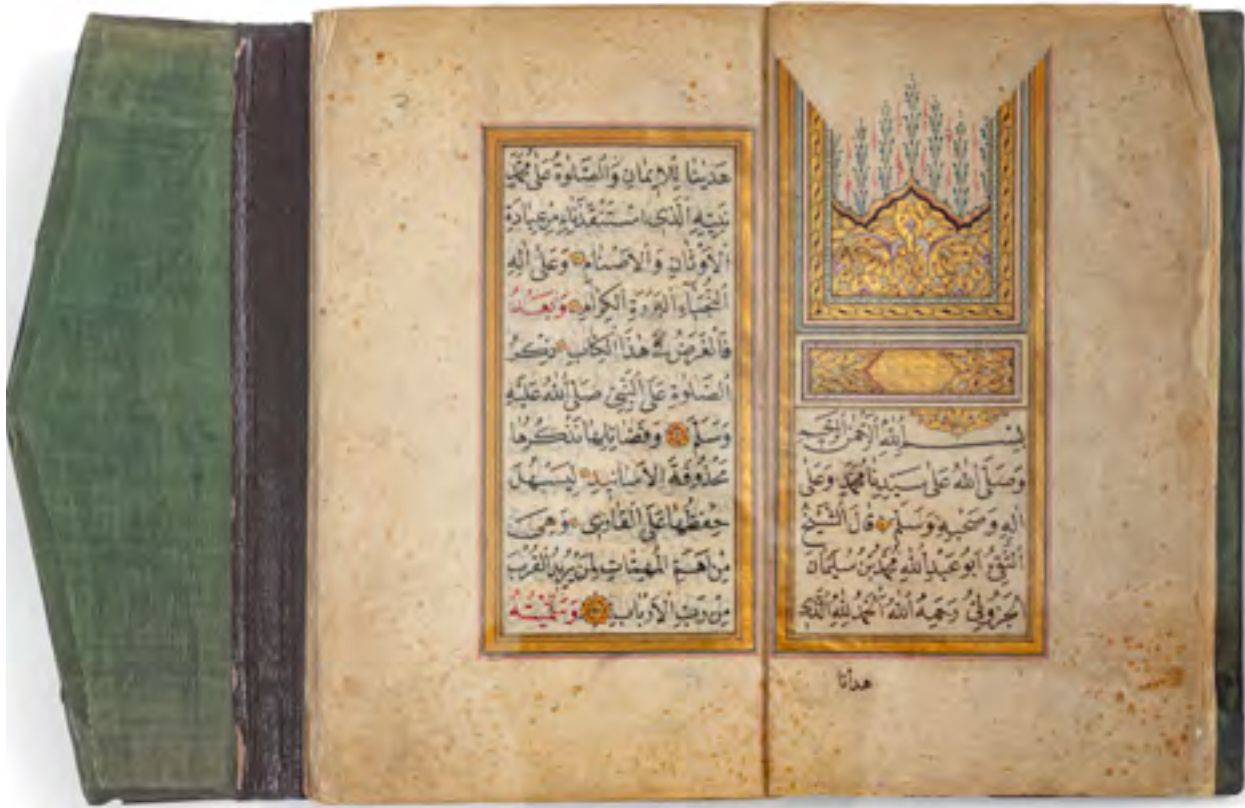 بِسْمِ اللهِ الرَّحْمٰنِ الرَّحِيمِ
وَصَلَّى اللهُ عَلٰى سَيِّدِنَا مُحَمَّدٍ وَعَلٰى
اٰلِهِ وَصَحْبِهِ وَسَلَّمَ قَالَ الشَّيْخُ
التَّقِيُّ اَبُو عَبْدِ اللهِ مُحَمَّدُ بْنُ سُلَيْمَانَ
الْجَزُولِيُّ رَحِمَهُ اللهُ اَلْحَمْدُ لِلّٰهِ الَّذِى
هدانا
هَدٰينَا لِلْاِيمَانِ وَالصَّلٰوةُ عَلٰى مُحَمَّدٍ
نَبِيِّهِ الَّذِى اسْتَنْقَذَنَا بِهِ مِنْ عِبَادَةِ
الْاَوْثَانِ وَالْاَصْنَامِ وَعَلٰى اٰلِهِ
النُّجَبَاءِ الْبَرَرَةِ الْكِرَامِ وَبَعْدُ
فَالْغَرَضُ فِى هٰذَا الْكِتَابِ ذِكْرُ
الصَّلٰوةِ عَلَى النَّبِيِّ صَلَّى اللهُ عَلَيْهِ
وَسَلَّمَ وَفَضَائِلِهَا نَذْكُرُهَا
مَحْذُوفَةَ الْاَسَانِيدِ لِيَسْهُلَ
حِفْظُهَا عَلَى الْقَارِى وَهِىَ
مِنْ اَهَمِّ الْمُهِمَّاتِ لِمَنْ يُرِيدُ الْقُرْبَ
مِنْ رَبِّ الْاَرْبَابِ وَسَمَّيْتُهُ